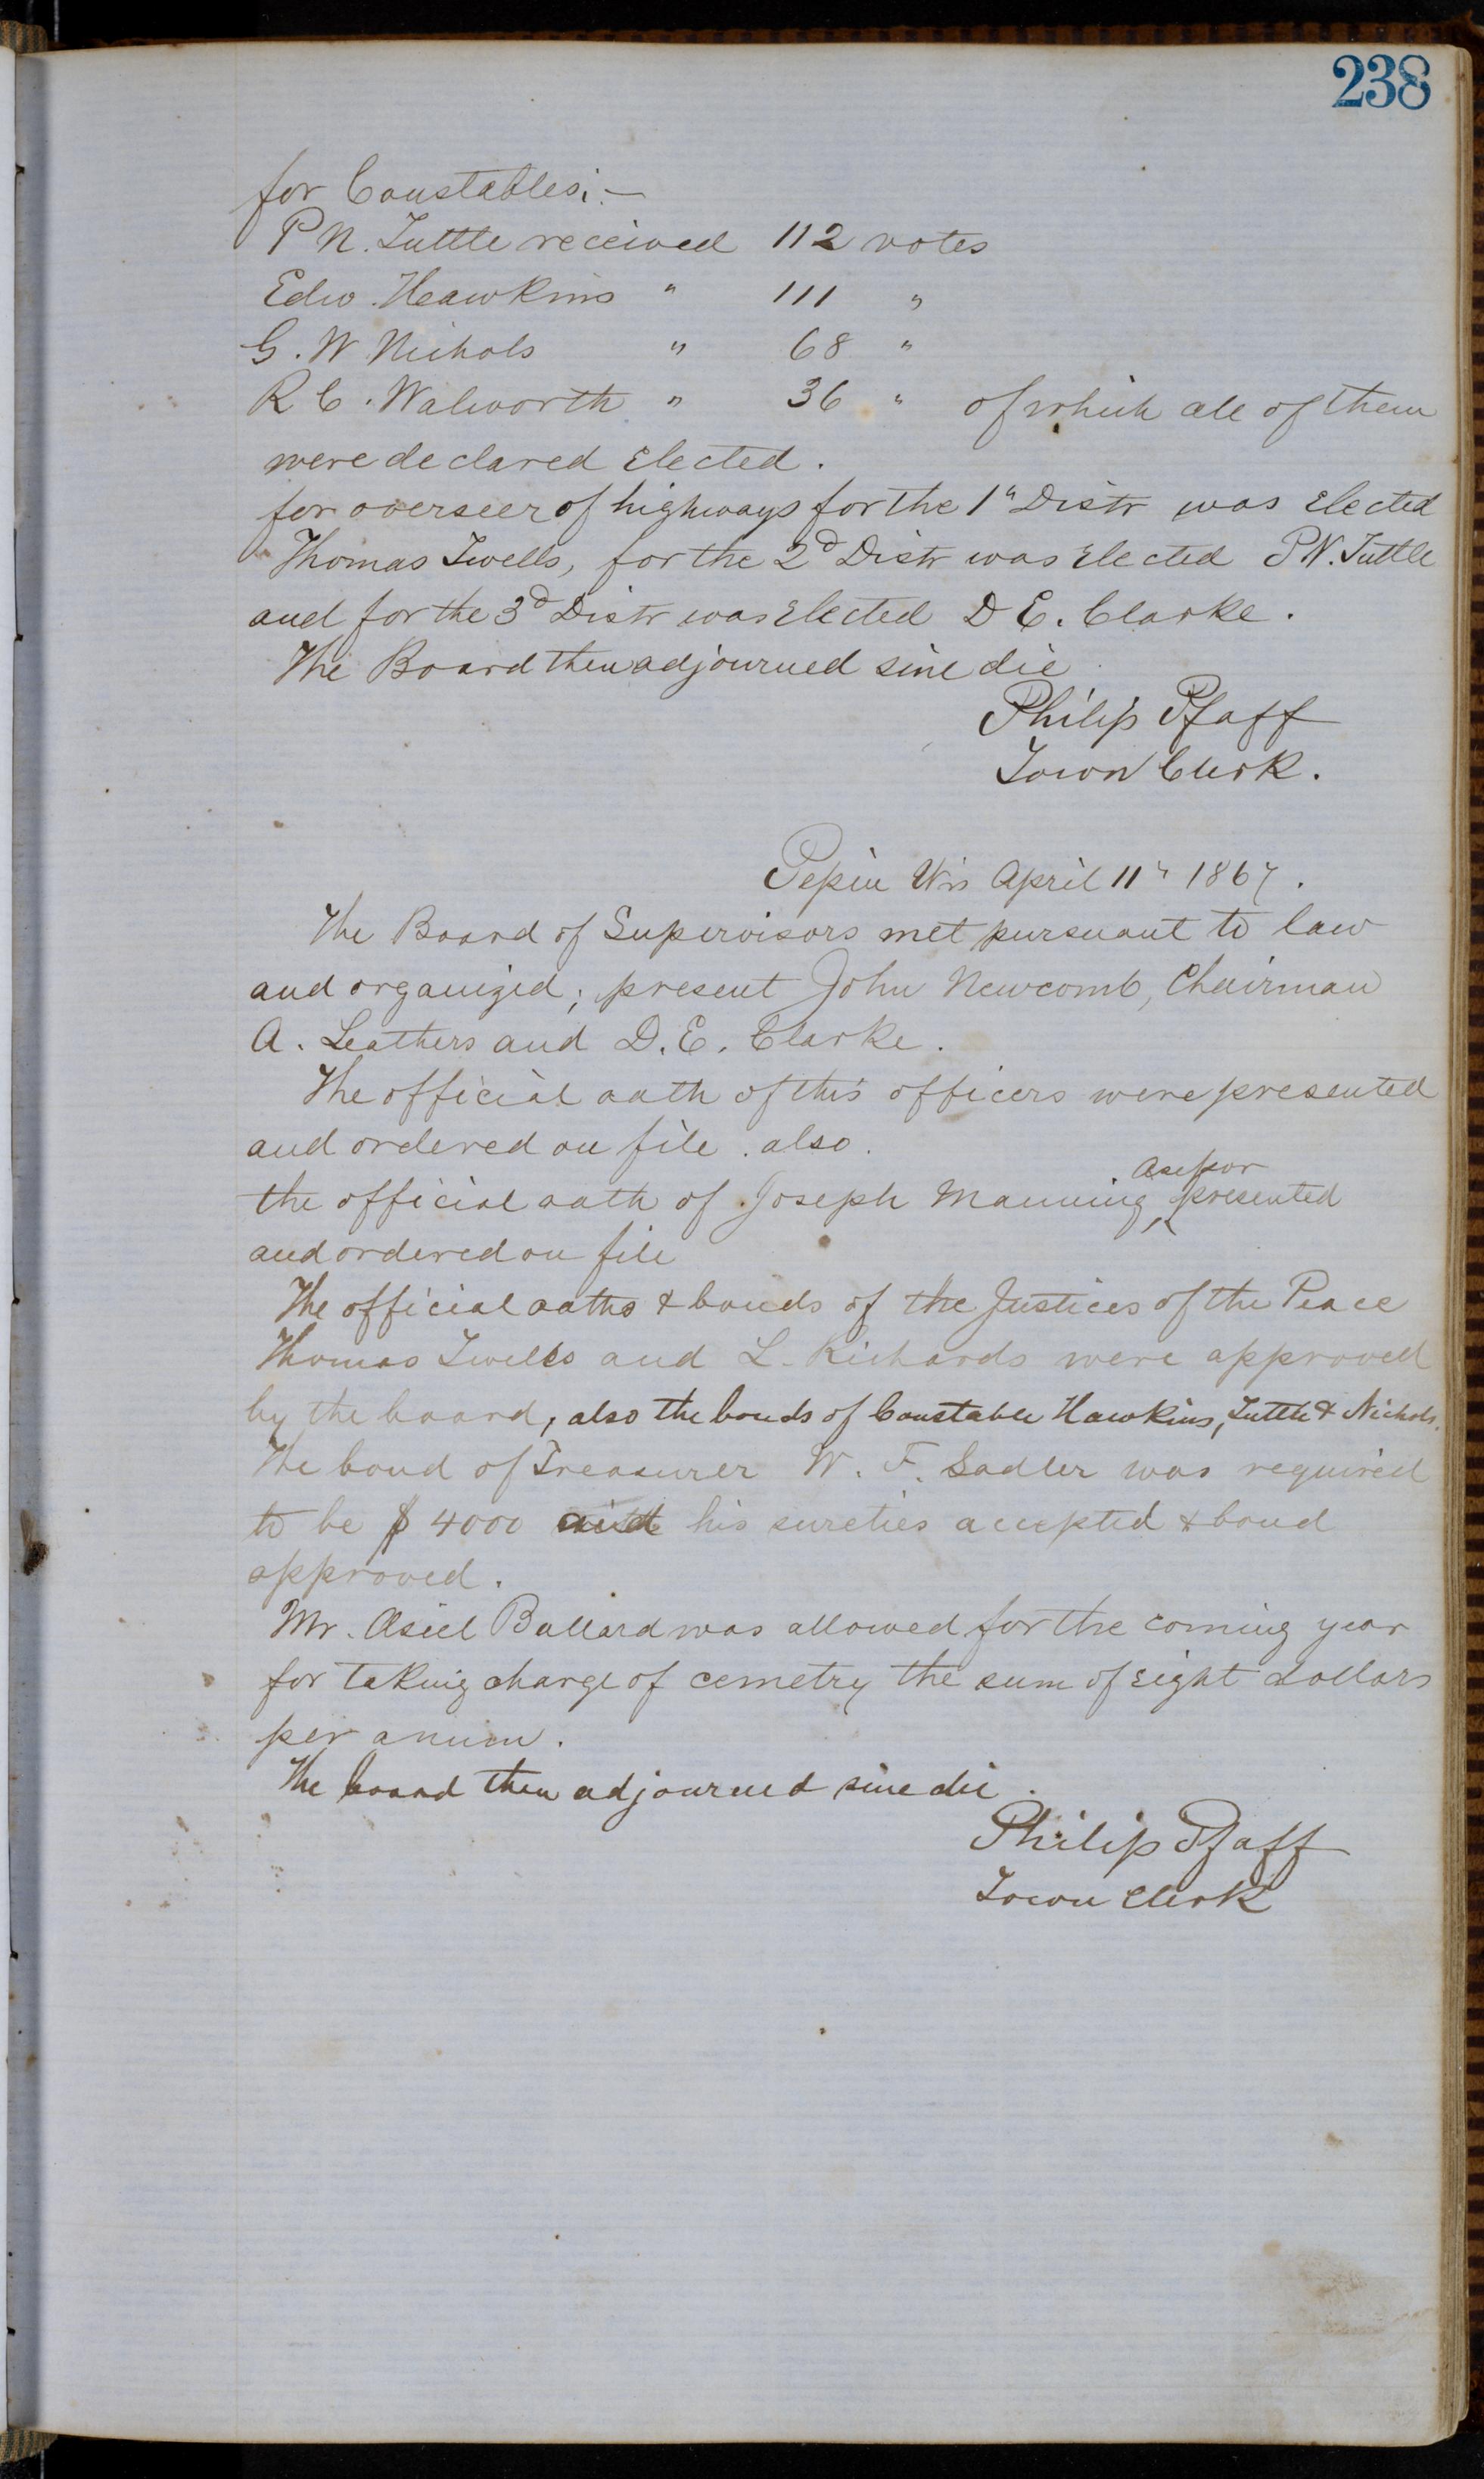 238
for Constables; —
P N. Tuttle received 112 votes
Edw. Heawkins " 111 "
G. W Nichols " 68 "
R C. Walworth " 36 " of which all of them
were declared Elected.
for overseer of highways for the 1" Distr was Elected
Thomas Twells, for the 2d Distr was Elected P N. Tuttle
and for the 3d Distr was Elected D E. Clarke.
The Board then adjourned sine die
Philip Pfaff
Town Clerk.
Pepin Wis April 11" 1867.
The Board of Supervisors met pursuant to law
and organized; present John Newcomb, Chairman
A. Leathers and D. E. Clarke.
The official oath of this officers were presented
and ordered on file. also.
the official oath of Joseph Manning, ^ Assessor presented
and ordered on file
The official oaths & bonds of the Justices of the Peace
Thomas Twells and L. Richards were approved
by the board, also the bonds of Constable Hawkins, Tuttle & Nichols.
The bond of Treasurer W. F. Sadler was required
to be $ 4000 and his sureties accepted & bond
approved.
Mr. Asiel Ballard was allowed for the coming year
for taking charge of cemetry the sum of Eight dollars
per anum.
The board then adjourned sine die.
Philip Pfaff
Town Clerk